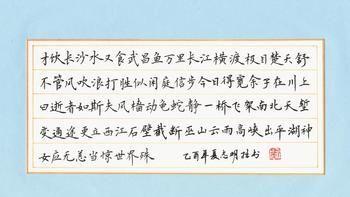 才饮长沙水又食武昌鱼万里长江横渡极目楚天舒
不管风吹浪打胜似闲庭信步今日得宽余子在川上
曰逝者如斯夫风樯动龟蛇静一桥飞架南北天堑
变通途更立西江石壁截断巫山云雨高峡出平湖神
女应无恙当惊世界殊 乙酉年夏志明拙书